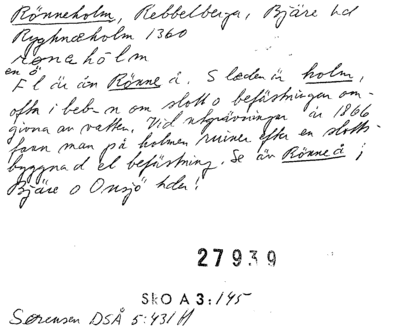 Rönneholm, Rebbelberga, Bjäre hd
Ryghnæholm 1360
rønahòlm
en ö
F l är ån Rönne å. S leden är holm,
ofta i beb-n om slott o befästningar om-
givna av vatten. Vid utgrävningar år 1866
fann man på holmen ruiner efter en slotts-
byggnad el befästning. Se äv Rönne å i
Bjäre o Onsjö hder!
27939
SKO A 3:145
Sørensen DSÅ 5:431 ff